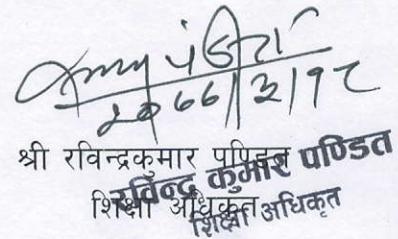 २०६६/३/१८
श्री रविन्द्रकुमार पण्डित
शिक्षा अधिकृत
रविन्द्र कुमार पण्डित
शिक्षा अधिकृत